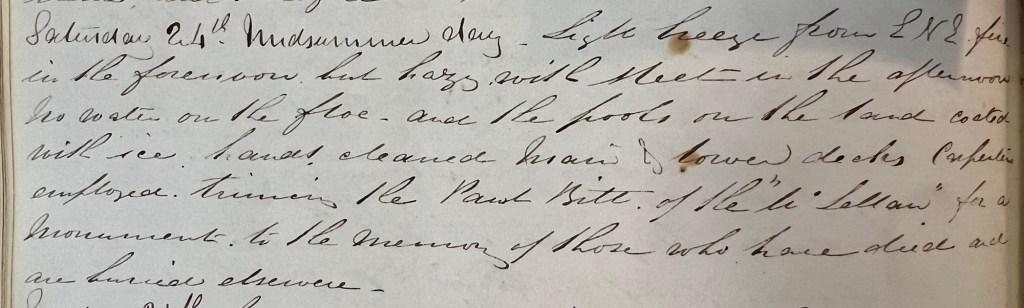 Saturday 24th. Midsummer day - Light breeze from E N E fine
in the forenoon. but hazy with sleet in the afternoon
No water on the floe - and the pools on the land coated
with ice. hands cleaned Main & lower decks
employed. triming the Pawl Bitt. of the "Mc Lellan" for a
Monument. to the memory of those who have died and
are buried elsewere -